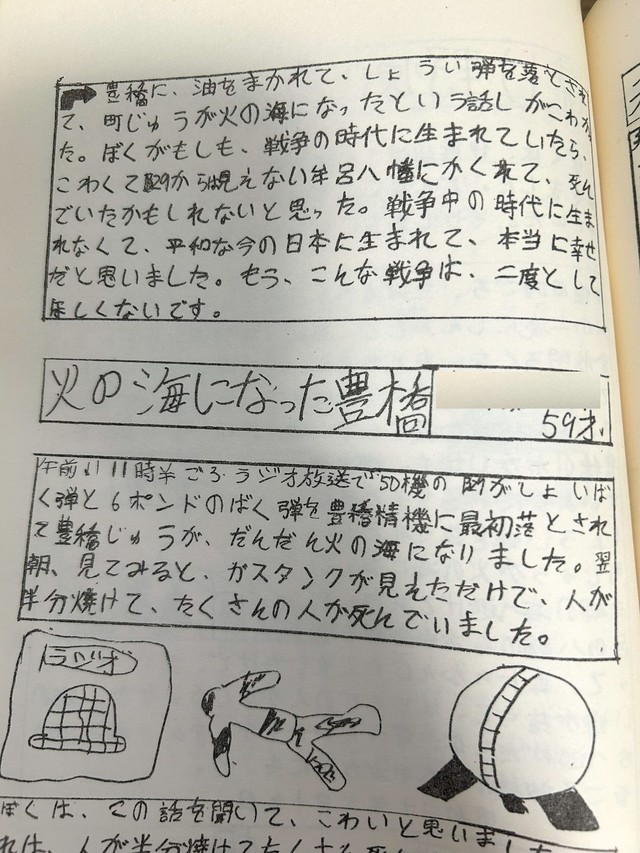 豊橋に、油をまかれて、しょうい弾を落とされ
て、町じゅうが火の海になったという話しがこわか
た。ぼくがもしも、戦争の時代に生まれていたら、
こわくて敵から見えない牟呂八幡にかくれて、死ん
でいたかもしれないと思った。戦争中の時代に生ま
れなくて、平和な今の日本に生まれて、本当に幸せ
だと思いました。もう、こんな戦争は、二度として
ほしくないです。
火の海になった豊橋
59才
午前11時半ごろラジオ放送で50機の敵がしょいば
く弾と6ポンドのばく弾を豊橋精機に最初落とされ
て豊橋じゅうが、だんだん火の海になりました。翌
朝、見てみると、ガスタンクが見えただけで、人が
半分焼けて、たくさんの人が死んでいました。
ラジオ
ぼくは、この話を聞いて、こわいと思いました
れは、人が半分焼けてたくさん